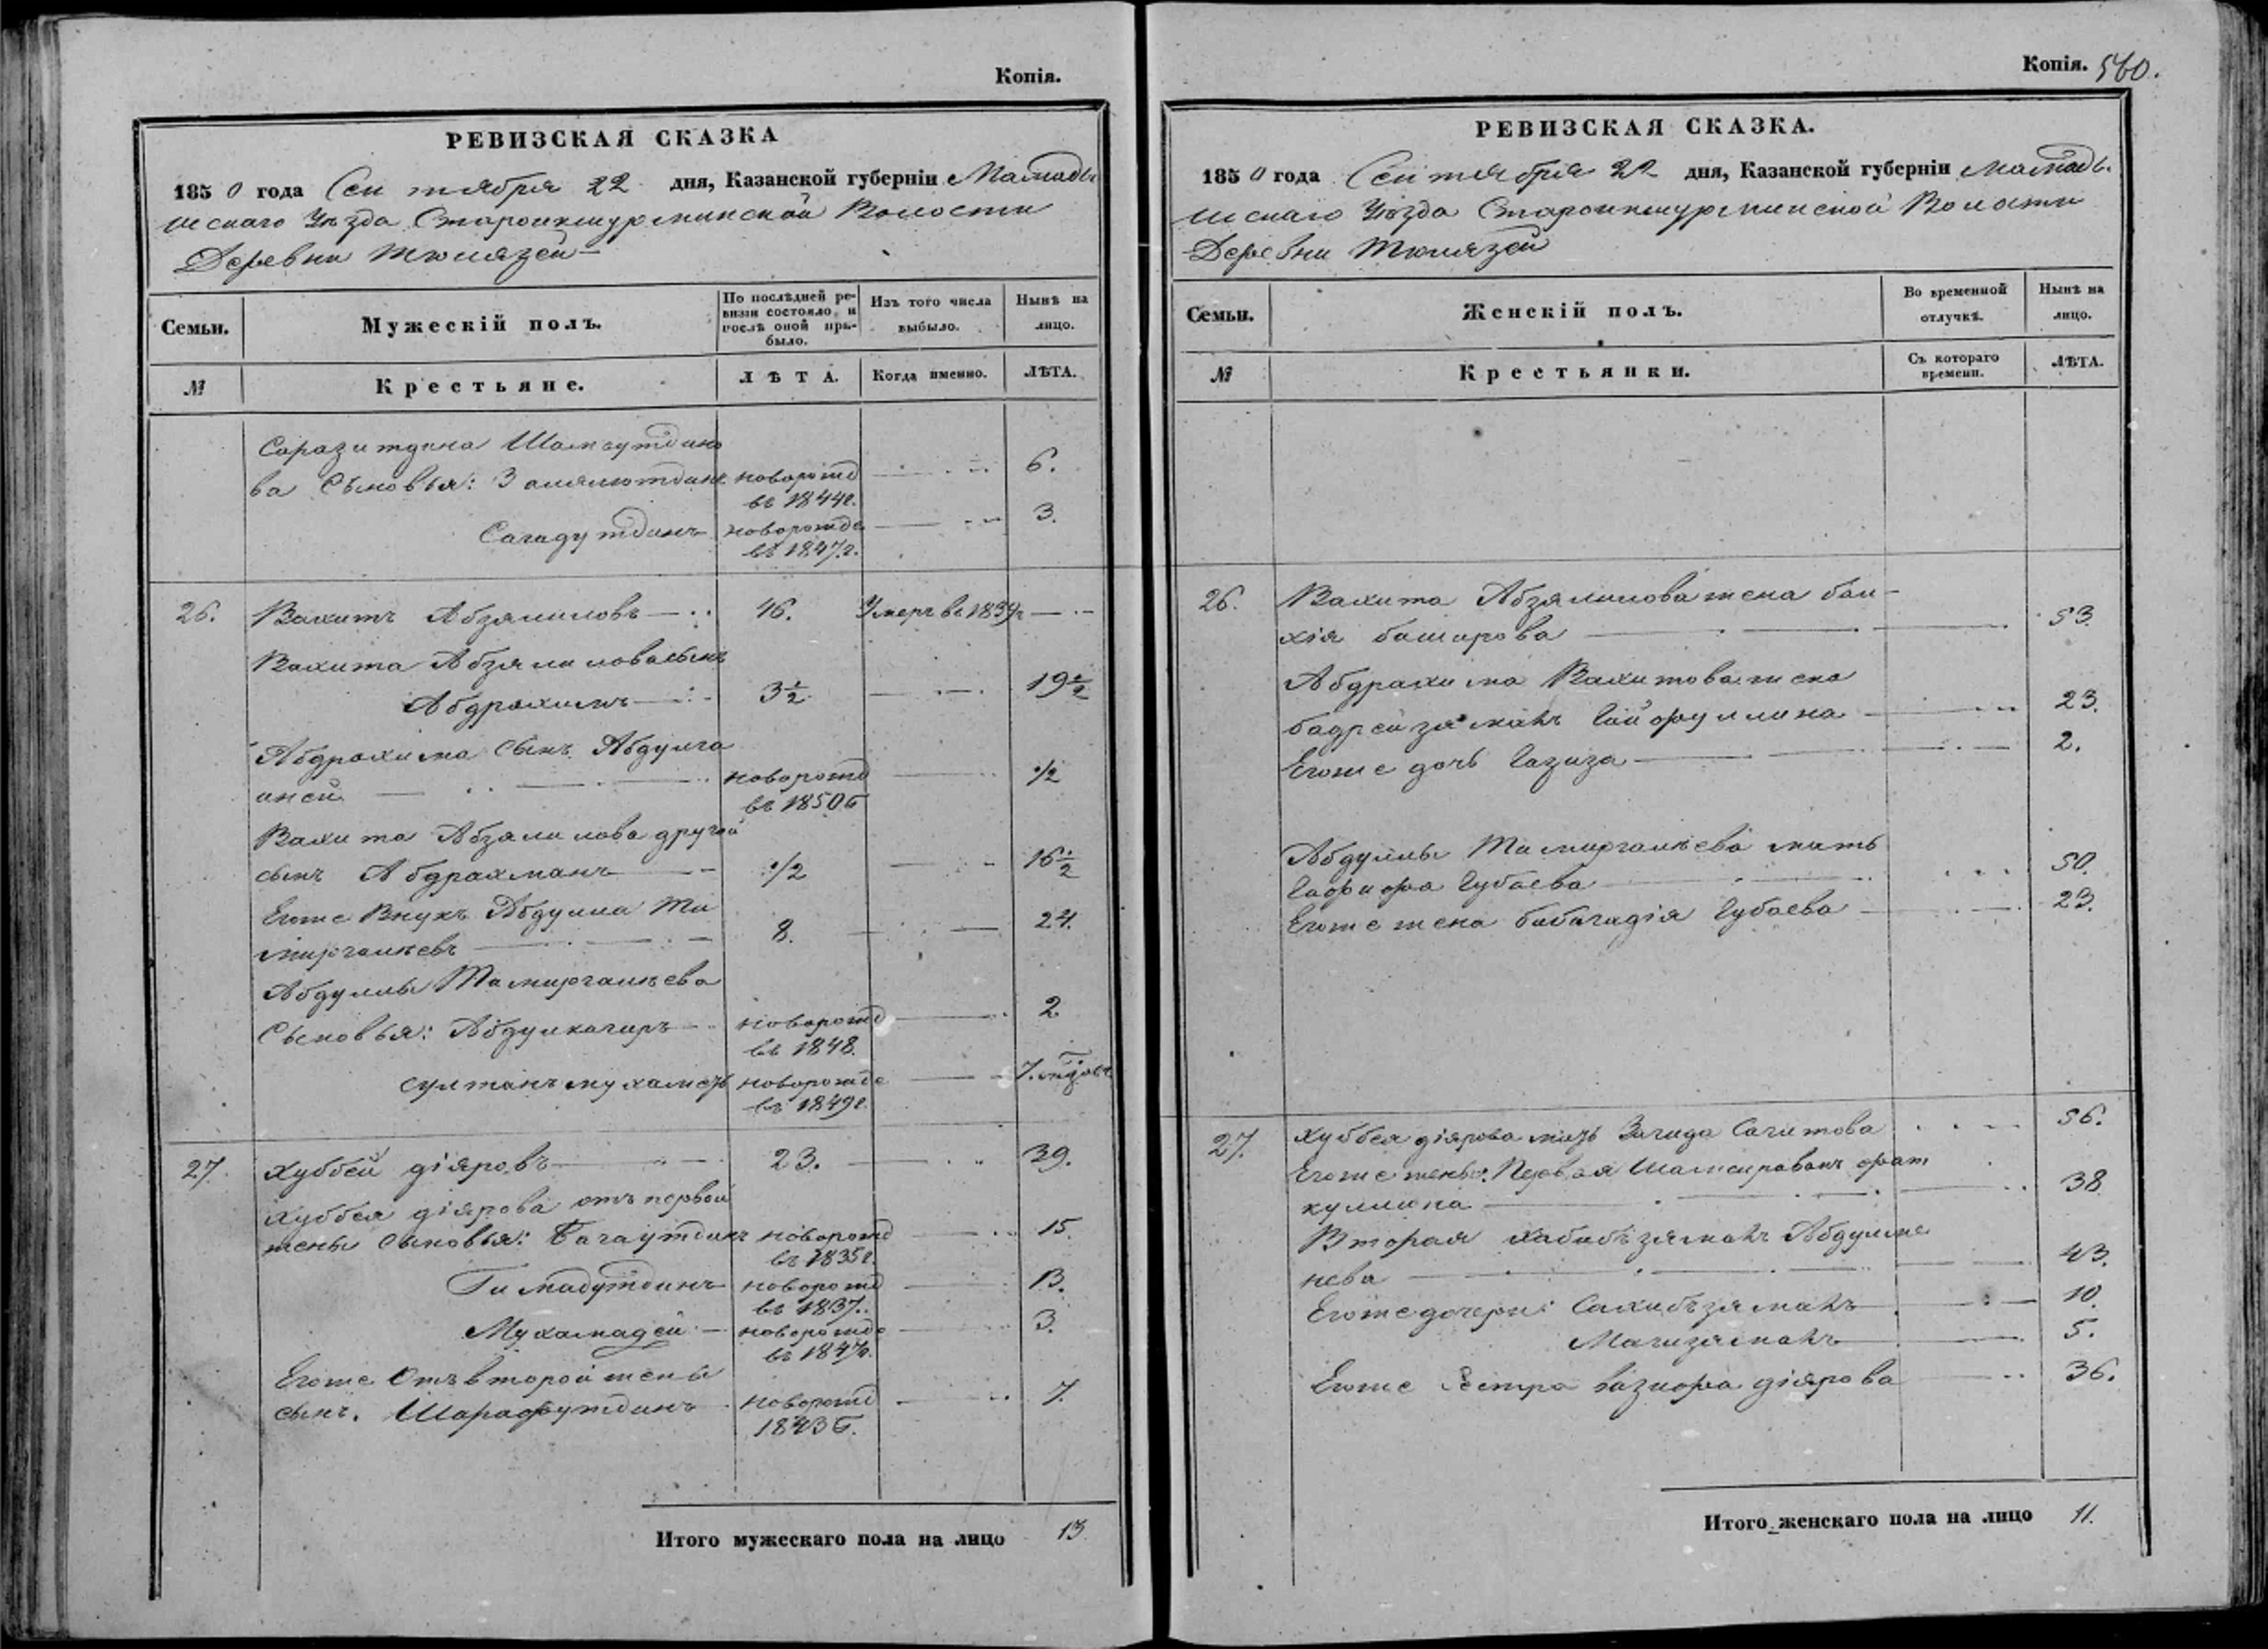 Копія.
РЕВИЗСКАЯ СКАЗКА
1850 года Сентября 22 дня, Казанской губерніи Мамады
шскаго Уѣзда Староикшурминской Волости
Деревни Тюлязей
Семьи.
Мужескій полъ.
По послѣдней ре-
визіи состояло и
послѣ оной при-
было.
Изъ того числа
выбыло.
Нынѣ на
лицо.
№
Крестьяне.
ЛѢТА.
Когда именно.
ЛѢТА.
Саразитдина Шамсутдино
ва Сыновья: Замлютдинъ новорожд 6.
въ 1844г.
Сагадутдинъ новорожде 3.
въ 1847.г.
26. Вахитъ Абзялиловъ 46. Умеръ въ 1834г
Вахита Абзялиловасынъ
Абдрахимъ 3½ 19½
Абдрахима сынъ Абдулга
иней новорожд ½
въ 1850 г
Вахита Абзялилова другой
сынъ Абдрахманъ ½ 16½
Егоже Внукъ Абдулла Ти
миргалѣевъ 8. 24.
Абдуллы Тимиргалѣева
Сыновья: Абдулкагиръ новорожд 2
въ 1848.
Султанъмухаметъ новорожде 7.
въ 1849г.
27. Хуббей діяровъ 23. 39.
Хуббея діярова отъ первой
жены Сыновья: Багаутдинъ новорожд 15.
въ 1835г.
Гимадутдинъ новорожд 13.
въ 1837.
Мухамадей новорожде 3.
въ 1847г.
Егоже Отъ второй жены
сынъ. Шарафутдинъ новорожд 7.
1843 г.
Итого мужескаго пола на лицо 13
Копія. 560.
РЕВИЗСКАЯ СКАЗКА.
1850 года Сентября 22 дня, Казанской губерніи Мамады.
шскаго Уѣзда Староикшурминской Волости
Деревни Тюлязей
Семьи.
Женскій полъ.
Во временной
отлучкѣ.
Нынѣ на
лицо.
№
Крестьянки.
Съ котораго
времени.
ЛѢТА.
26. Вахита Абзялилова жена бал-
хія башарова 53.
Абдрахима Вахитова жена
бадрейзяманъ Гайфуллина 23.
Егоже дочь Газиза 2.
Абдуллы Тимиргалѣева мать
Гафифа Губаева 50.
Егоже жена бибигадія Губаева 23.
27. Хуббея діярова мать Загида Сагитова 56.
Егоже жены: Первая Шамсирабанъ фат
куллина 38.
Вторая хабибъзяманъ Абдулме
нева 43.
Егоже дочери: Сахибъзяманъ 10.
Магизяманъ 5.
Егоже Сестра Вазифа діярова 36.
Итого женскаго пола на лицо 11.